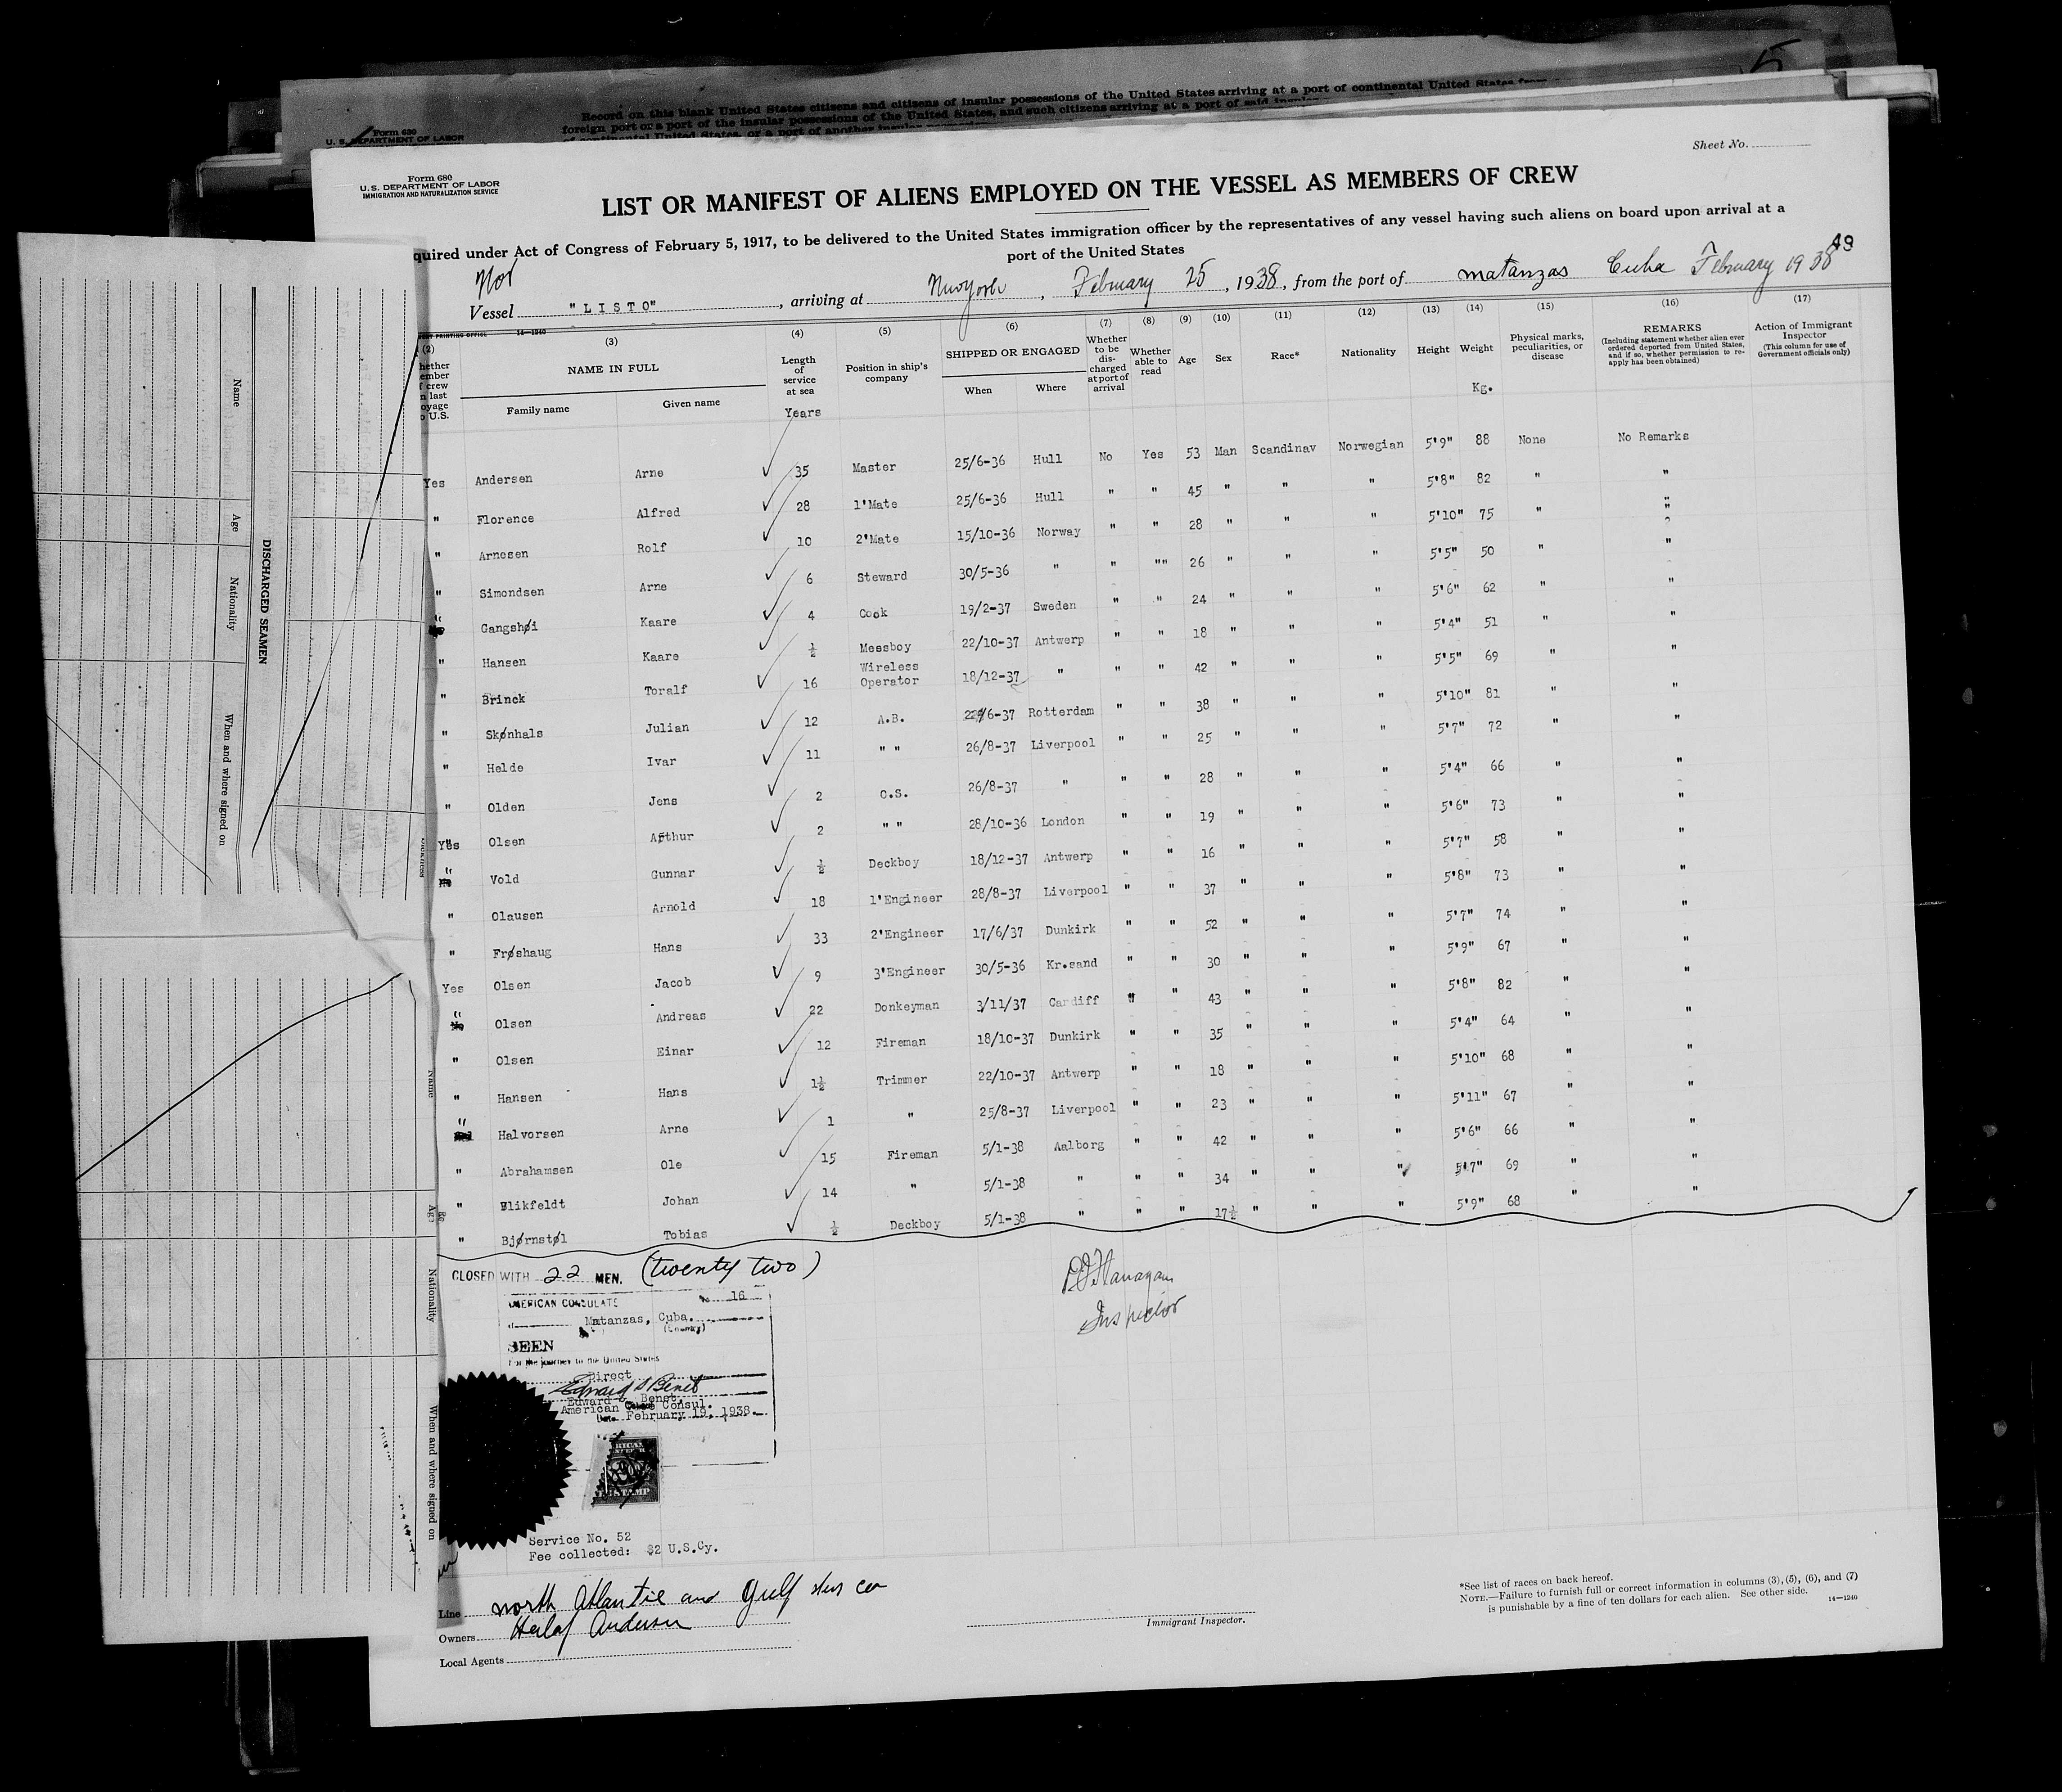 5
Record on this blank United States citizens and citizens of insular possessions of the United States arriving at a port of continental United States from
foreign port or a port of the insular possessions of the United States, and such citizens arriving at a port of said
of continental United States, or a port of another insular
Form 680
U. S. DEPARTMENT OF LABOR
Sheet No.
Form 680
U.S. DEPARTMENT OF LABOR
IMMIGRATION AND NATURALIZATION SERVICE
LIST OR MANIFEST OF ALIENS EMPLOYED ON THE VESSEL AS MEMBERS OF CREW
quired under Act of Congress of February 5, 1917, to be delivered to the United States immigration officer by the representatives of any vessel having such aliens on board upon arrival at a
port of the United States
49
Nor
Vessel "LISTO", arriving at Newyork, February 25, 1938, from the port of matanzas Cuba February 1938
14—1240
(2) (3) (4) (5) (6) (7) (8) (9) (10) (11) (12) (13) (14) (15) (16) (17)
hether
ember
f crew
n last
oyage
o U.S.
NAME IN FULL
Family name Given name
Length
of
service
at sea
Years
Position in ship's
company
SHIPPED OR ENGAGED
When Where
Whether
to be
dis-
charged
at port of
arrival
Whether
able to
read
Age
Sex
Race*
Nationality
Height
Weight
Kg.
Physical marks,
peculiarities, or
disease
REMARKS
(Including statement whether alien ever
ordered deported from United States,
and if so, whether permission to re-
apply has been obtained)
Action of Immigrant
Inspector
(This column for use of
Government officials only)
Yes Andersen Arne 35 Master 25/6-36 Hull No Yes 53 Man Scandinav Norwegian 5'9" 88 None No Remarks
" Florence Alfred 28 1'Mate 25/6-36 Hull " " 45 " " " 5'8" 82 " "
" Arnesen Rolf 10 2'Mate 15/10-36 Norway " " 28 " " " 5'10" 75 " "
" Simondsen Arne 6 Steward 30/5-36 " " "" 26 " " " 5'5" 50 " "
" Gangshøi Kaare 4 Cook 19/2-37 Sweden " " 24 " " " 5'6" 62 " "
" Hansen Kaare ½ Messboy 22/10-37 Antwerp " " 18 " " " 5'4" 51 " "
" Brinck Toralf 16 Wireless Operator 18/12-37 " " " 42 " " " 5'5" 69 " "
" Skønhals Julian 12 A.B. /6-37 Rotterdam " " 38 " " " 5'10" 81 " "
" Helde Ivar 11 " " 26/8-37 Liverpool " " 25 " " " 5'7" 72 " "
" Olden Jens 2 O.S. 26/8-37 " " " 28 " " " 5'4" 66 " "
Yes Olsen Arthur 2 " " 28/10-36 London " " 19 " " " 5'6" 73 " "
" Vold Gunnar ½ Deckboy 18/12-37 Antwerp " " 16 " " " 5'7" 58 " "
" Olausen Arnold 18 1'Engineer 28/8-37 Liverpool " " 37 " " " 5'8" 73 " "
" Frøshaug Hans 33 2'Engineer 17/6/37 Dunkirk " " 52 " " " 5'7" 74 " "
Yes Olsen Jacob 9 3'Engineer 30/5-36 Kr.sand " " 30 " " " 5'9" 67 " "
" No Olsen Andreas 22 Donkeyman 3/11/37 Cardiff " " 43 " " " 5'8" 82 " "
" Olsen Einar 12 Fireman 18/10-37 Dunkirk " " 35 " " " 5'4" 64 " "
" Hansen Hans 1½ Trimmer 22/10-37 Antwerp " " 18 " " " 5'10" 68 " "
" Halvorsen Arne 1 " 25/8-37 Liverpool " " 23 " " " 5'11" 67 " "
" Abrahamsen Ole 15 Fireman 5/1-38 Aalborg " " 42 " " " 5'6" 66 " "
" Blikfeldt Johan 14 " 5/1-38 " " " 34 " " " 5'7" 69 " "
" Bjørnstøl Tobias ½ Deckboy 5/1-38 " " " 17½ " " " 5'9" 68 " "
CLOSED WITH 22 MEN. (twenty two)
Inspector
No 16
AMERICAN CONSULATE
Matanzas, Cuba.
(Country)
SEEN
For the journey to the United States
Direct
Edward S Benet
Edward S. Benet,
American Consul.
Date February 19, 1938.
Service No. 52
Fee collected: $2 U.S.Cy.
Line north Atlantic and Gulf
Owners Herlof Andersen
Local Agents
Immigrant Inspector.
*See list of races on back hereof.
NOTE.—Failure to furnish full or correct information in columns (3), (5), (6), and (7)
is punishable by a fine of ten dollars for each alien. See other side.
14—1240
DISCHARGED SEAMEN
Name
Age
Nationality
When and where signed on
Name
Age
Nationality
When and where signed on